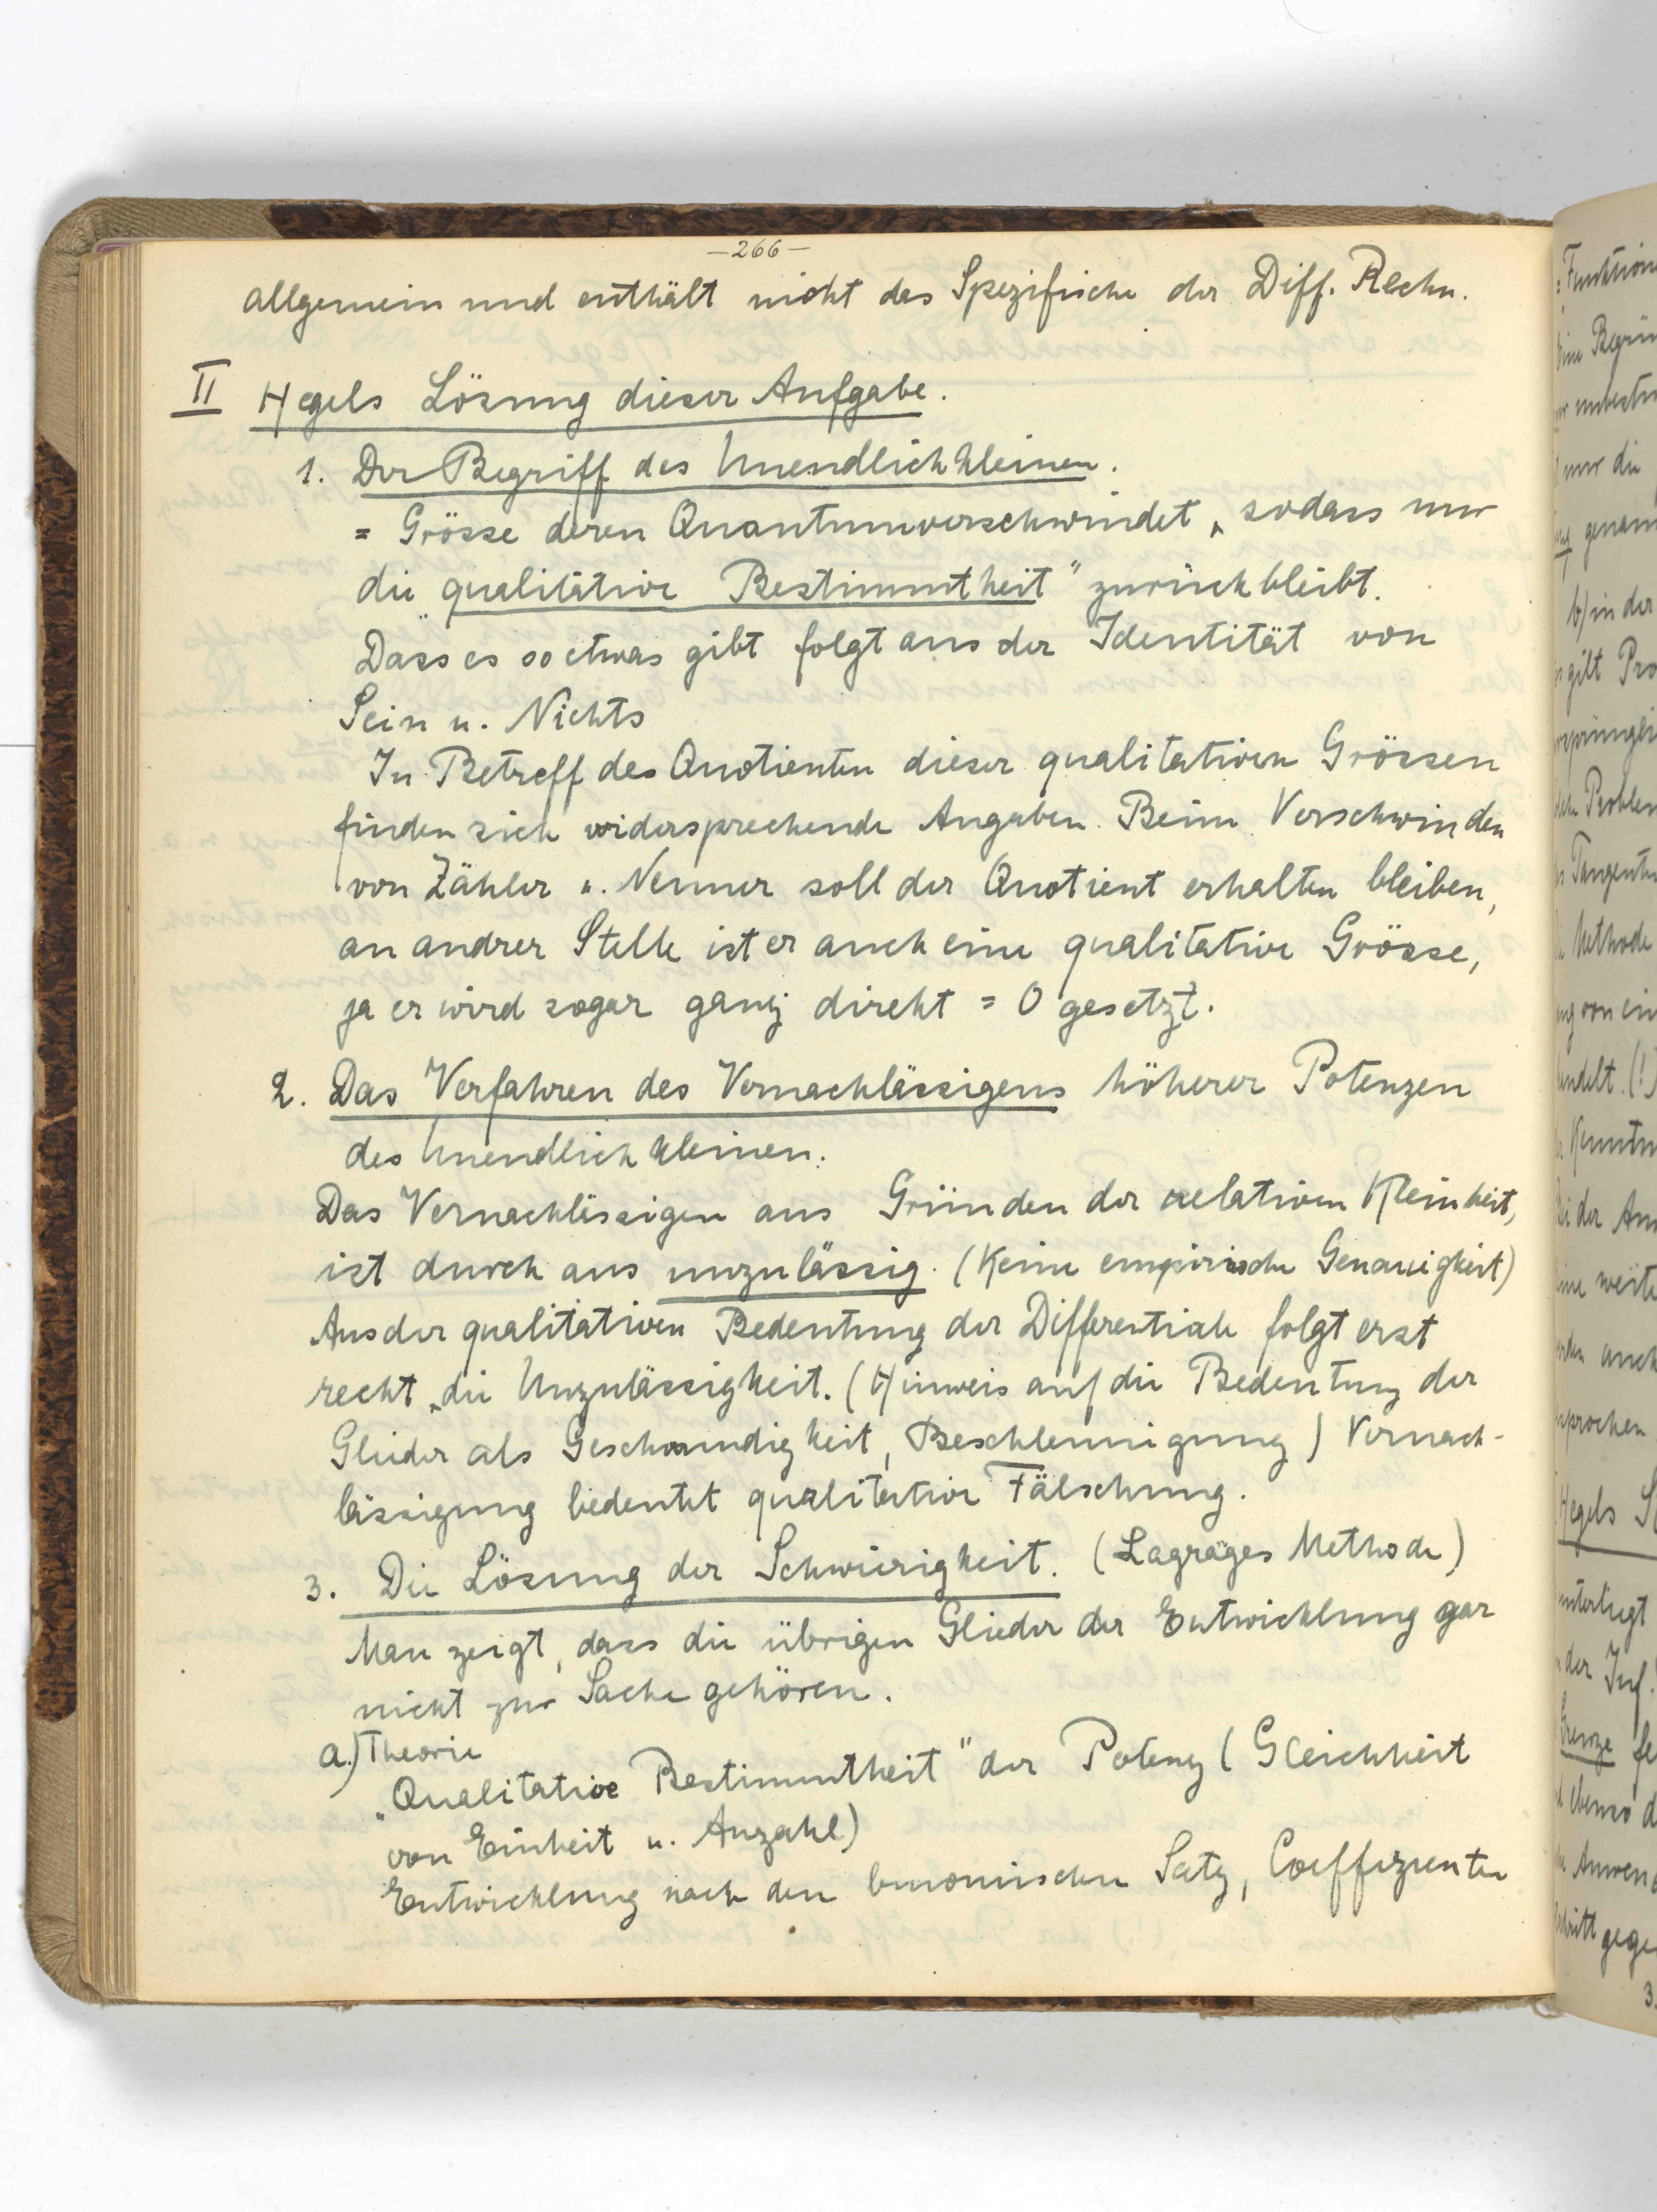 -266-
allgemein und enthält nicht das Spezifische der Diff. Rechn.
II Hegels Lösung dieser Aufgabe.
1. Der Begriff des Unendlichkleinen.
= Grösse deren Quantumverschwindet, sodass nur
die „qualitative Bestimmtheit" zurückbleibt.
Dass es so etwas gibt folgt aus der Identität von
Sein u. Nichts
In Betreff des Quotienten dieser qualitativen Grössen
finden sich widersprechende Angaben. Beim Verschwinden
von Zähler u. Nenner soll der Quotient erhalten bleiben,
an andrer Stelle ist er auch eine qualitative Grösse,
ja er wird sogar ganz direkt = 0 gesetzt.
2. Das Verfahren des Vernachlässigens höherer Potenzen
des Unendlichkleinen.
Das Vernachlässigen aus Gründen der relativen Kleinheit,
ist durchaus unzulässig. (Keine empirische Genauigkeit)
Aus der qualitativen Bedeutung der Differentiale folgt erst
recht die Unzulässigkeit. (Hinweis auf die Bedeutung der
Glieder als Geschwindigkeit, Beschleunigung) Vernach-
lässigung bedeutet qualitative Fälschung.
3. Die Lösung der Schwierigkeit. (Lagrages Methode)
Man zeigt, dass die übrigen Glieder der Entwicklung gar
nicht zur Sache gehören.
a.) Theorie
„Qualitative Bestimmtheit" der Potenz (Gleichheit
von Einheit u. Anzahl)
Entwicklung nach den binomischen Satz, Coeffizienten